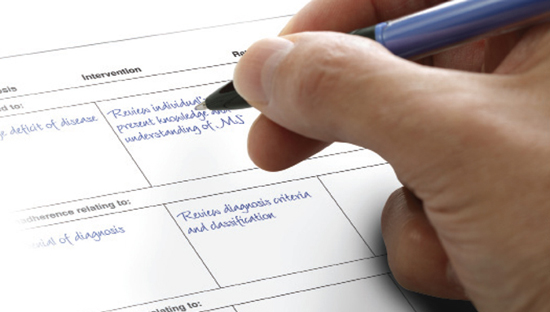 Intervention
d to:
deficit of disease
Review individual's
present knowledge and
understanding of MS
dherence relating to:
of diagnosis
Review diagnosis criteria
and classification
lating to: